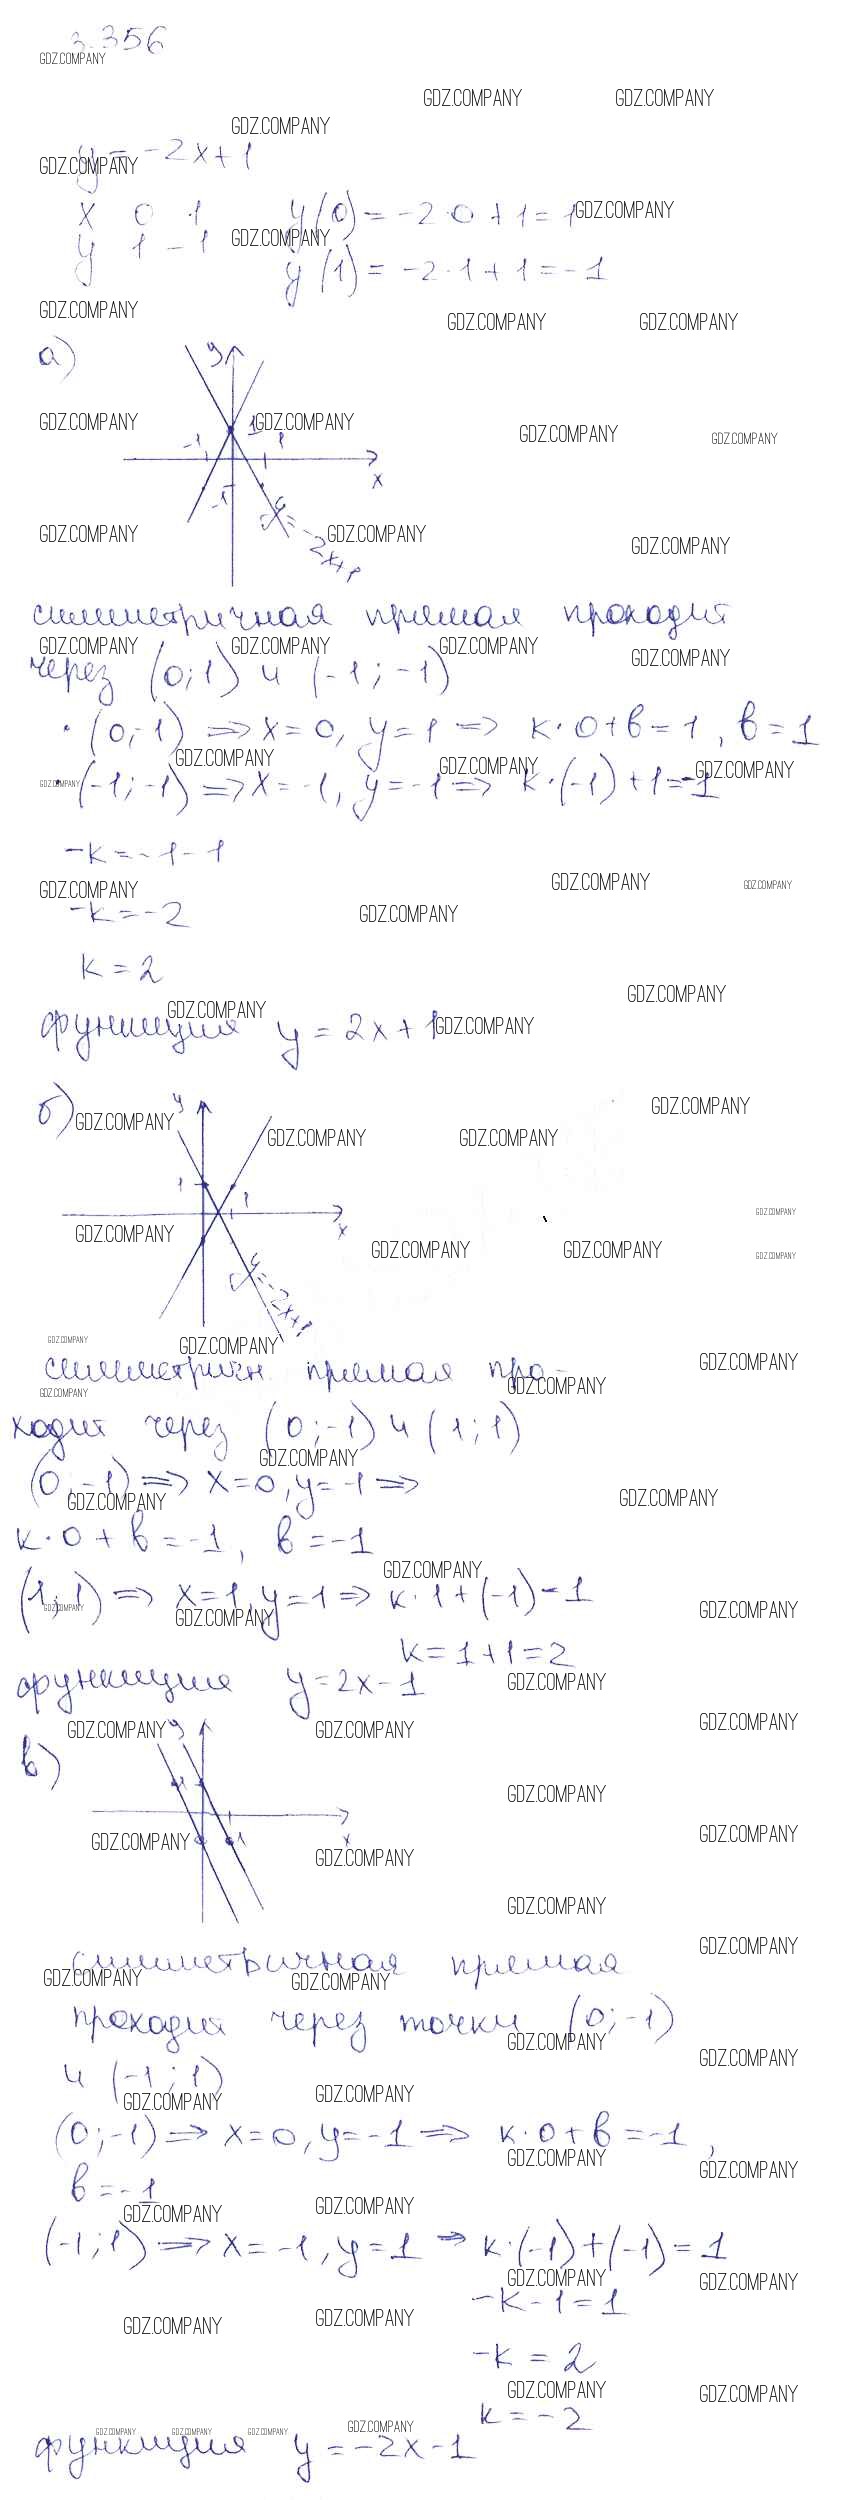 3.356
y = -2x+1
x 0 1 y(0) = -2·0+1=1
y 1 -1 y(1) = -2·1+1=-1
а)
y
-1 1 1
x
-1
y=-2x+1
симметричная прямая проходит
через (0;1) и (-1;-1)
· (0;-1) => x=0, y=1 => k·0+b=1, b=1
· (-1;-1) => x=-1, y=-1 => k·(-1)+1=-1
-k=-1-1
-k=-2
k=2
функция y=2x+1
б)
y
1 1
x
y=-2x+1
симметричн. прямая про-
ходит через (0;-1) и (1;1)
(0;-1) => x=0, y=-1 =>
k·0+b=-1, b=-1
(1;1) => x=1, y=1 => k·1+(-1)=1
k=1+1=2
функция y=2x-1
в)
y
1
x
симметричная прямая
проходит через точки (0;-1)
и (-1;1)
(0;-1) => x=0, y=-1 => k·0+b=-1,
b=-1
(-1;1) => x=-1, y=1 => k·(-1)+(-1)=1
-k-1=1
-k=2
k=-2
функция y=-2x-1
GDZ.COMPANY